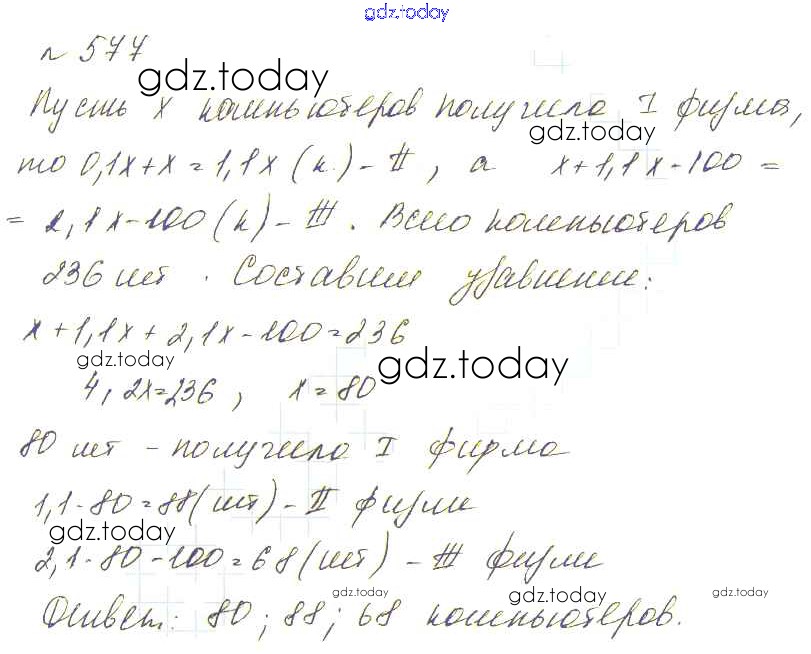 gdz.today
№ 577
gdz.today
Пусть х компьютеров получила I фирма,
gdz.today
то 0,1х+х=1,1х (к.) - II, а х+1,1х-100 =
= 2,1х-100 (к) - III. Всего компьютеров
236 шт. Составим уравнение:
х+1,1х+2,1х-100=236
gdz.today
gdz.today
4,2х=236, х=80
80 шт - получила I фирма
1,1·80=88(шт) - II фирм
gdz.today
2,1·80-100=68(шт) - III фирм
gdz.today gdz.today gdz.today
Ответ: 80; 88; 68 компьютеров.